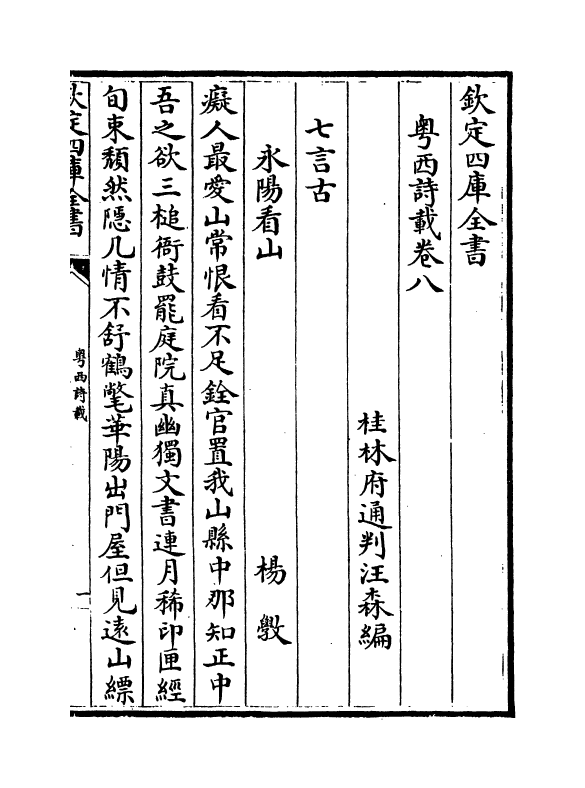 欽定四庫全書
粤西詩載卷八
桂林府通判汪森編
七言古
永陽看山 楊斆
癡人最愛山常恨看不足銓官置我山縣中那知正中
吾之欲三槌衙鼓罷庭院真幽獨文書連月稀印匣經
旬束頽然隱几情不舒鶴氅華陽出門屋但見逺山縹
欽定四庫全書
粤西詩載
一